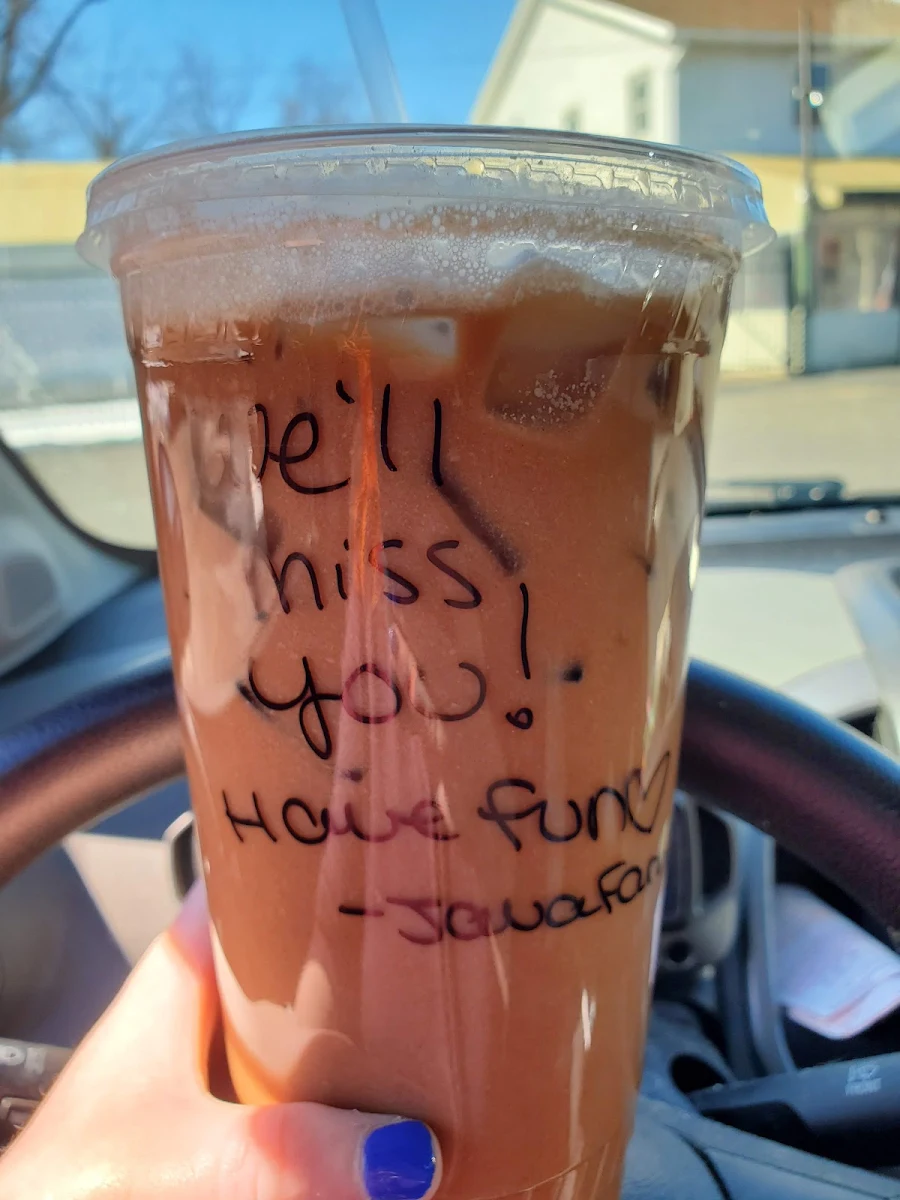 We'll
miss
you!
Have fun♡
-JavaFam